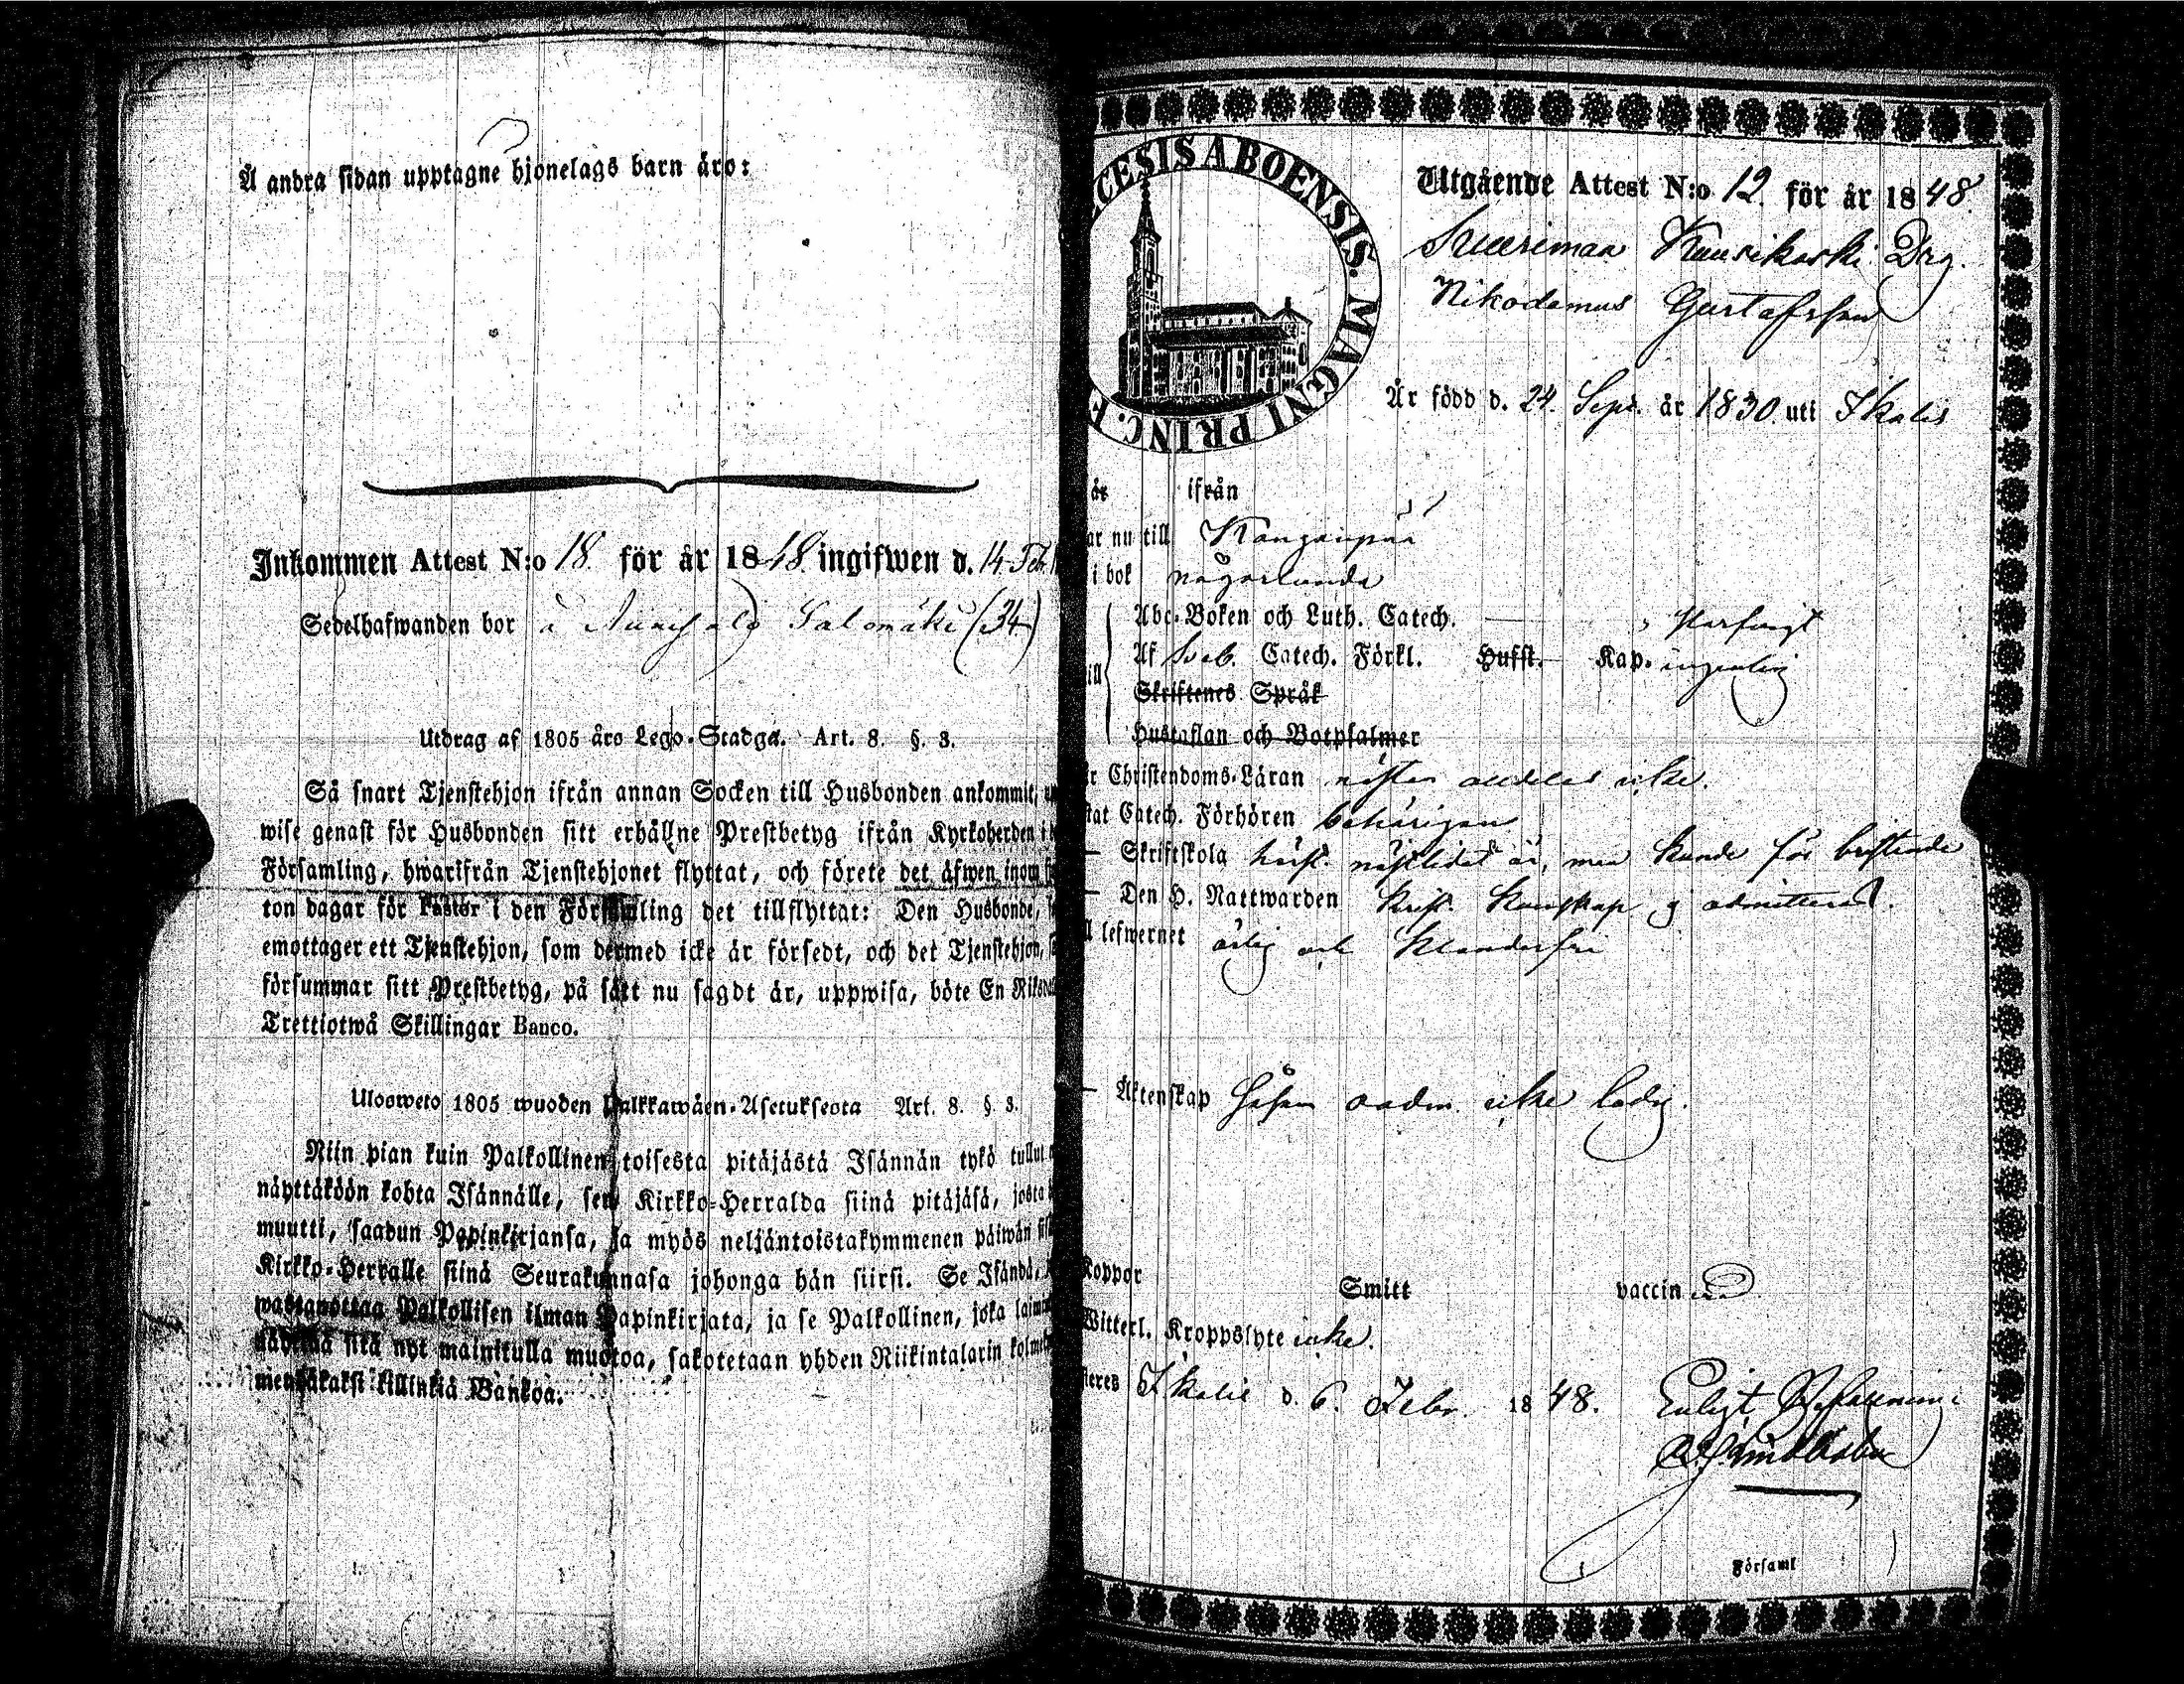 Å andra sidan upptagne hjonelags barn äro:
Inkommen Attest N:o 18. för år 1848. ingifwen d. 14. Feb.
Sedelhafwanden bor å Salomäki (34)
Utdrag af 1805 års Lego-Stadga. Art. 8. §. 3.
Så snart Tjenstehjon ifrån annan Socken till Husbonden ankommit,
wise genast för Husbonden sitt erhållne Prestbetyg ifrån Kyrkoherden i
Församling, hwarifrån Tjenstehjonet flyttat, och förete det äfwen inom
ton dagar för Pastor i den Församling det tillflyttat: Den Husbonde,
emottager ett Tjenstehjon, som dermed icke är försedt, och det Tjenstehjon,
försummar sitt Prestbetyg, på sätt nu sagdt är, uppwisa, böte En
Trettiotwå Skillingar Banco.
Ulosweto 1805 wuoden Palkkawäen-Asetuksesta Art. 8. §. 3.
Niin pian kuin Palkollinen toisesta pitäjästä Isännän tykö tullut
näyttäköön kohta Isännälle, sen Kirkko-Herralda siinä pitäjäsä, josta
muutti, saadun Papinkirjansa, ja myös neljäntoistakymmenen päiwän
Kirkko-Herralle siinä Seurakunnasa johonga hän siirsi. Se Isändä,
wastanottaa Palkollisen ilman Papinkirjata, ja se Palkollinen, joka
sitä nyt mainitulla muotoa, sakotetaan yhden Riikintalarin
killinkiä Bankoa.
CESIS ABOENSIS. MAGNI PRINC. F
Utgående Attest N:o 12. för år 1848.
Kuusikoski Drg.
Nikodemus Gustafsson
Är född d. 24. Sept. år 1830. uti Ikalis
år ifrån
ar nu till Kanganpää
i bok någorlunda
Abc-Boken och Luth. Catech. ,
Af Sveb. Catech. Förkl. Husst. Kap. ingenting
Skriftenes Språk
Hustaflan och Botpsalmer
r Christendoms-Läran nästan alldeles icke.
tat Catech. Förhören behörigen
Skriftskola nästlidet år, men kunde för bristande
Den H. Nattwarden krist. kunskap ej admitteras.
l lefwernet ärlig och klanderfri
Äktenskap ledig.
Koppor Smitt vaccinerad
Witterl. Kroppslyte icke.
steres Ikalis d. 6. Febr. 1848. Enligt
Församl